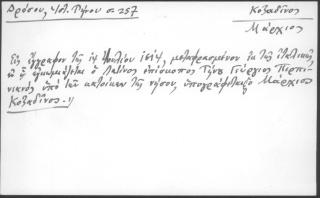 Δρόσου, Ἱστ. Τήνου σ. 257
Κοζαδῖνος
Μάρκιος
Εἰς ἔγγραφον τῆς ιγ Ἰουλίου 16 , μεταφρασμένον ἐκ τῆς ἰταλικῆς,
ὁ Λατῖνος ἐπίσκοπος Τήνου Γεώργιος Περπι-
νιανὸς ὑπὸ τῶν κατοίκων τῆς νήσου, ὑπογράφεται Μάρκιος
Κοζαδῖνος.